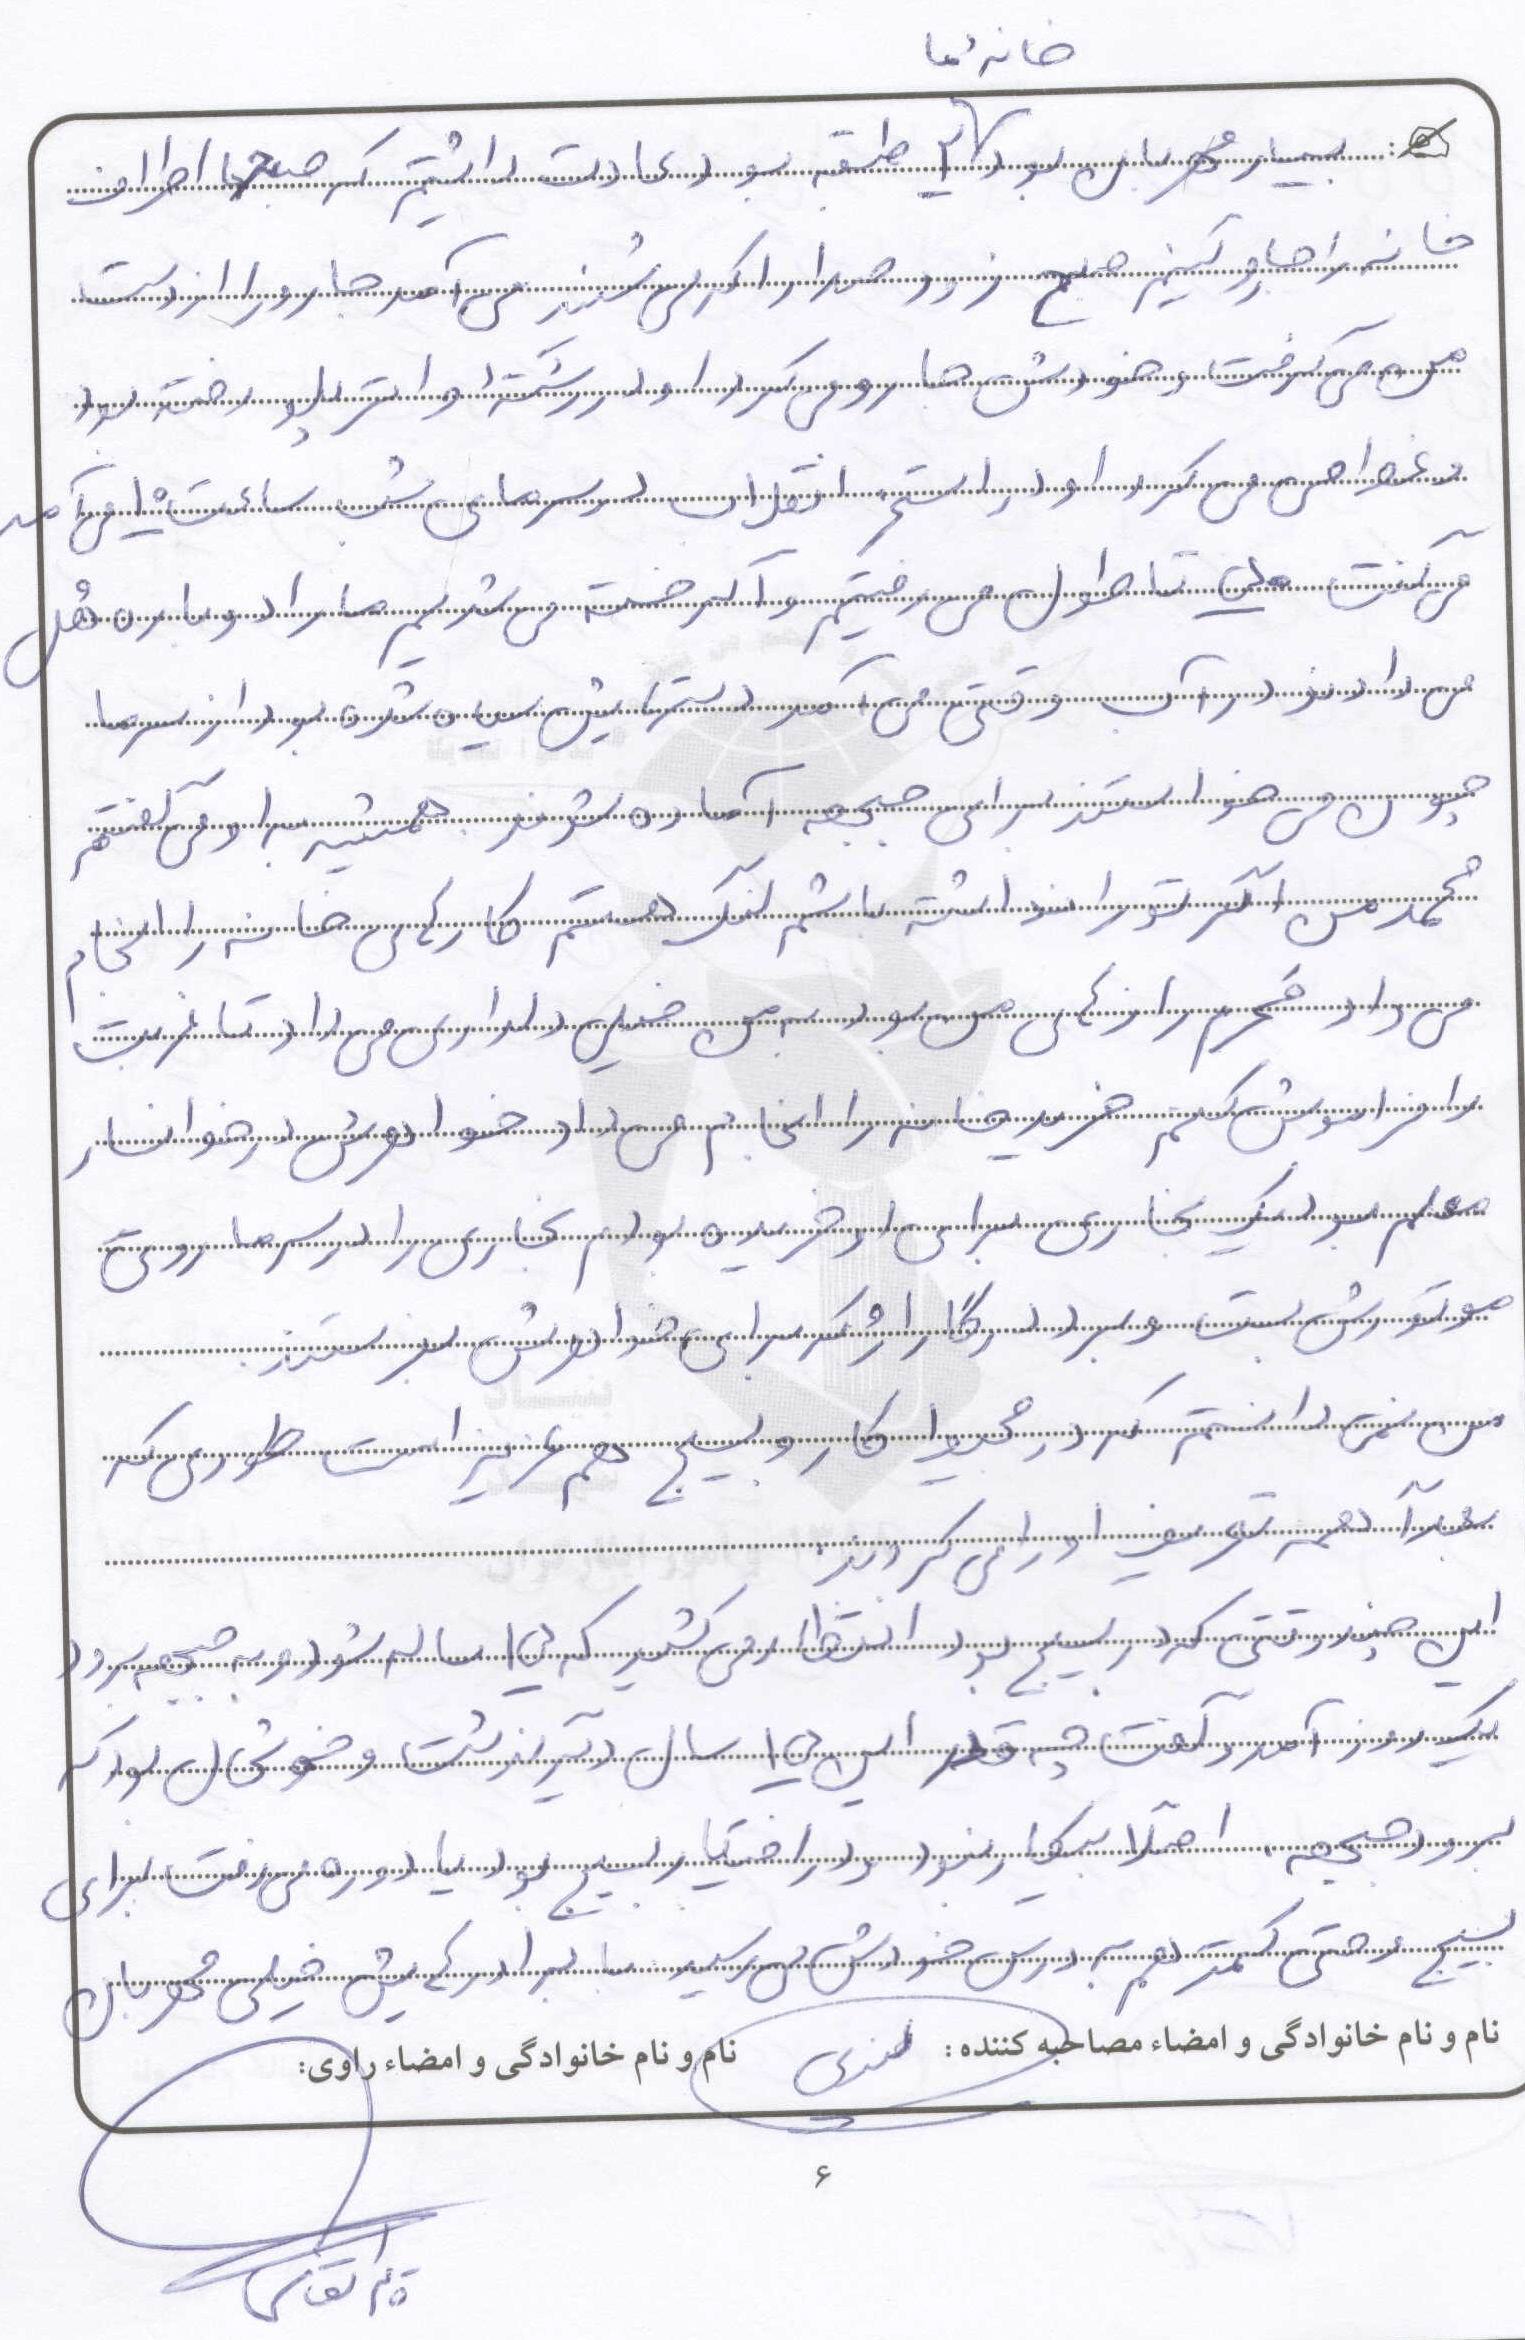 خانه ما
بسیار مهربان بود ۲ طبقه بود عادت داشتم که صبحا اطراف
خانه را جارو کنیم صبح زود صدا را که می شنید می آمد جارو را از دست
من می گرفت و خودش جارو می کرد او در رشته واترپلو رفته بود
و غواصی می کرد او در استخر انقلاب در سرمای شب ساعت ۱۰ می آمد
می گفت تا طول می رفتیم و اگر خسته می شدیم ما را دوباره هُل
می دادند در آب وقتی می آمد دستهایش سیاه شده بود از سرما
چون می خواستند برای جبهه آماده شوند. همیشه به او می گفتم
محمد من اگر تو را نداشته باشم لنگ هستم کارهای خانه را انجام
می داد محرم رازهای من بود به من خیلی دلداری می داد تا غربت
را فراموش کنم خرید خانه را انجام می داد خواهرش در خوانسار
معلم بود یک بخاری برای او خریده بودم بخاری را در سرما روی
موتورش بست و برد در گاراژ که برای خواهرش بفرستند.
من نمی دانستم که در محیط کار و بسیج هم عزیز است طوری که
بعداً همه تعریف او را می کردند.
این چند وقتی که در بسیج بود انتظار می کشید که ۱۵ ساله شود و به جبهه برود
یک روز آمد و گفت چه قدر این ۱۵ سال دیر گذشت و خوشحال بود که
برود جبهه. اصلاً بیکار نبود و در اختیار بسیج بود یا دوره می رفت برای
بسیج و حتی کمتر هم به درس خودش می رسید. با برادرهایش خیلی مهربان
نام و نام خانوادگی و امضاء مصاحبه کننده: نام و نام خانوادگی و امضاء راوی:
۶